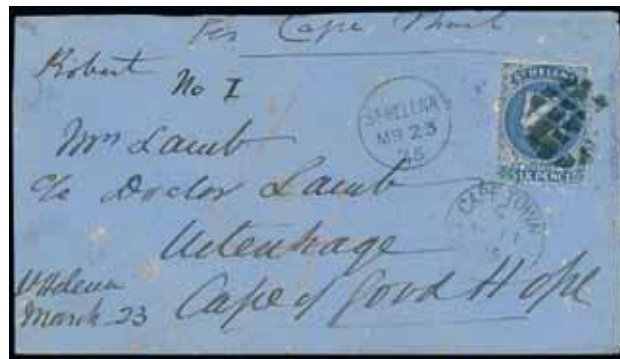 Per Cape Mail
Robert
No I
ST HELENA
MR 23
75
ST HELENA
SIX PENCE
Mrs Lamb
c/o Doctor Lamb
CAPE TOWN
Uitenhage
Cape of Good Hope
St Helena
March 23